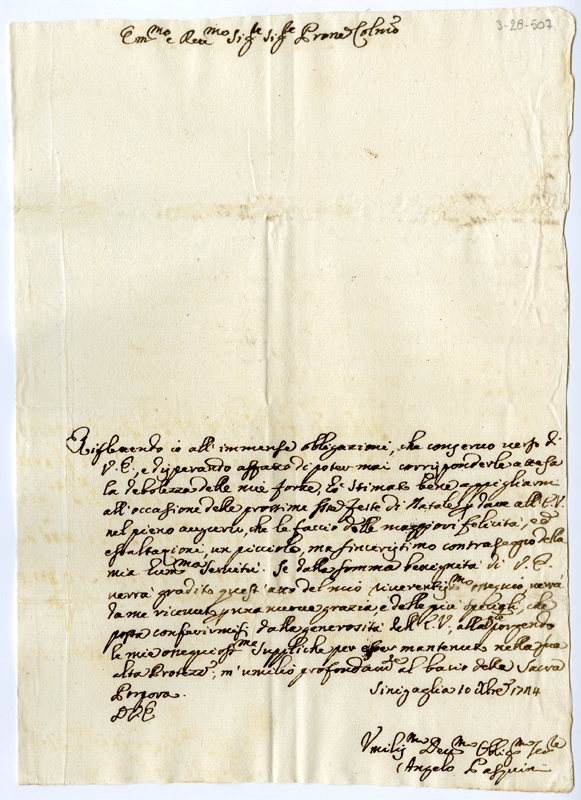 3-28-507
Em.mo e Reu.mo Sig.re Sig.re Prone Colmo
Riflettendo io all'immense obbligazioni, che conseruo uerso di
V. E., e disperando affatto di poter mai corrisponderle attesa
la debolezza delle mie forze, hò stimato bene appigliarmi
all'occasione delle prossime Feste di Natale p dare all'E.V.
nel pieno augurio, che le faccio delle maggiori felicità, ed
esaltazioni, un picciolo, ma sincerissimo contrasegno della
mia hum.ma Seruitù. Se dalla somma benignità di V. E.
uerrà gradito quest'atto del mio riuerentis.mo ossequio, uerrà
da me riceuuto p una nuoua grazia, e delle più che
possa conferirmisi dalla generosità dell'E.V., alla porgendo
le mie ossequiosis.me Suppliche per esser mantenuto nella sua
alta Protez.e, m'umilio profondam.te al bacio della Sacra
Porpora.
Sinigaglia 10 Xbre 1744
D. V. E.
Vmilis.mo Deu.mo Oblig.mo
Angelo Pasquini